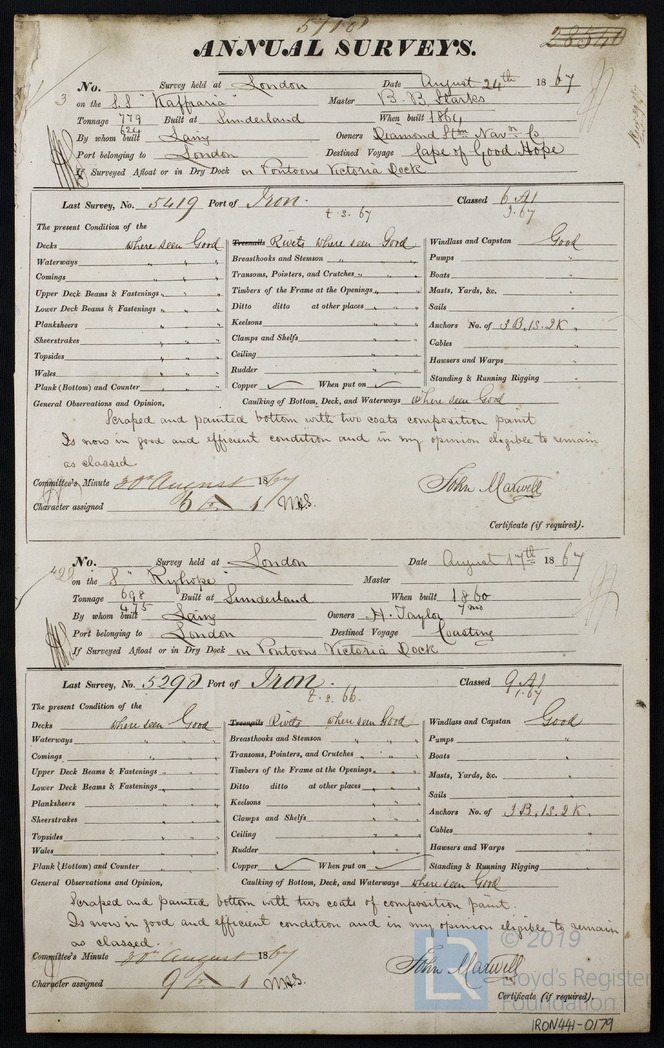 ANNUAL SURVEYS.
28540
No. Survey held at London Date August 24th 1867
on the S.S "Kaffraria" Master B. B. Starks
Tonnage 779 Built at Sunderland When built 1864
624
By whom built Laing Owners Diamond Stm Navn Co
Port belonging to London Destined Voyage Cape of Good Hope
If Surveyed Afloat or in Dry Dock on Pontoons Victoria Dock
Last Survey, No. 5419 Port of Iron. Classed 6 A1
t.s. 67 3.67
The present Condition of the
Decks where seen Good Treenails Rivets where seen Good Windlass and Capstan Good
Waterways " " Breasthooks and Stemson " " Pumps "
Comings " " Transoms, Pointers, and Crutches " " Boats "
Upper Deck Beams & Fastenings " " Timbers of the Frame at the Openings " " Masts, Yards, &c. "
Lower Deck Beams & Fastenings " " Ditto ditto at other places " " Sails "
Planksheers " " Keelsons " " Anchors No. of 3B.1S.2K. "
Sheerstrakes " " Clamps and Shelfs " " Cables "
Topsides " " Ceiling " " Hawsers and Warps "
Wales " " Rudder " " Standing & Running Rigging "
Plank (Bottom) and Counter " " Copper ✓ When put on ✓
General Observations and Opinion, Caulking of Bottom, Deck, and Waterways where seen Good
Scraped and painted bottom with two coats composition paint
Is now in good and efficient condition and in my opinion eligible to remain
as classed
Committee's Minute 30th August 1867 John Maxwell
Character assigned 6 A 1
Certificate (if required).
No. Survey held at London Date August 17th 1867
on the S "Ryhope" Master
Tonnage 698 Built at Sunderland When built 1860
475 7 mo
By whom built Laing Owners H. Taylor
Port belonging to London Destined Voyage Coasting
If Surveyed Afloat or in Dry Dock on Pontoons Victoria Dock
Last Survey, No. 5290 Port of Iron. Classed 9 A1
t.s. 66. 1.67
The present Condition of the
Decks where seen Good Treenails Rivets where seen Good Windlass and Capstan Good
Waterways " " Breasthooks and Stemson " " Pumps "
Comings " " Transoms, Pointers, and Crutches " " Boats "
Upper Deck Beams & Fastenings " " Timbers of the Frame at the Openings " " Masts, Yards, &c. "
Lower Deck Beams & Fastenings " " Ditto ditto at other places " " Sails "
Planksheers " " Keelsons " " Anchors No. of 3B.1S.2K. "
Sheerstrakes " " Clamps and Shelfs " " Cables "
Topsides " " Ceiling " " Hawsers and Warps "
Wales " " Rudder " " Standing & Running Rigging "
Plank (Bottom) and Counter " " Copper ✓ When put on ✓
General Observations and Opinion, Caulking of Bottom, Deck, and Waterways where seen Good
Scraped and painted bottom with two coats of composition paint.
Is now in good and efficient condition and in my opinion eligible to remain
as classed.
Committee's Minute 30th August 1867 John Maxwell
Character assigned 9 A 1
Certificate (if required).
LR © 2019
Lloyd's Register
Foundation
IRON441-0179